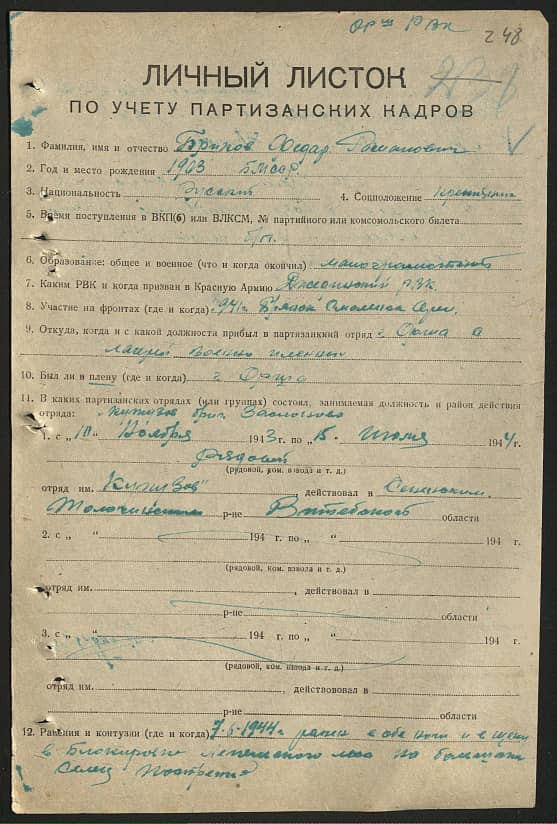 Орш РВК
248
ЛИЧНЫЙ ЛИСТОК
ПО УЧЕТУ ПАРТИЗАНСКИХ КАДРОВ
1. Фамилия, имя и отчество Романович
2. Год и место рождения 1903 БМССР
3. Национальность Русский 4. Соцположение крестьянин
5. Время поступления в ВКП(б) или ВЛКСМ, № партийного или комсомольского билета
б/п.
6. Образование: общее и военное (что и когда окончил) малограмотный
7. Каким РВК и когда призван в Красную Армию РВК.
8. Участие на фронтах (где и когда) 1941 г. Брянск Смоленск
9. Откуда, когда и с какой должности прибыл в партизанский отряд г. Орша с
лагерей военно пленных
10. Был ли в плену (где и когда) г. Орша
11. В каких партизанских отрядах (или группах) состоял, занимаемая должность и район действия
отряда: бриг Заслонова
1. с „10“ Ноября 1943 г. по „15“ Июля 1944 г.
рядовой
(рядовой, ком. взвода и т. д.)
отряд им. действовал в Сенненском
Толочинском р-не Витебской области
2. с „ “ 194 г. по „ “ 194 г.
(рядовой, ком. взвода и т. д.)
отряд им. , действовал в
р-не области
3. с „ “ 194 г. по „ “ 194 г.
(рядовой, ком. взвода и т. д.)
отряд им. , действовал в
р-не области
12. Ранения и контузии (где и когда) 1944 г. ранен в обе ноги и в щеку
в Блокировке Лепельского леса